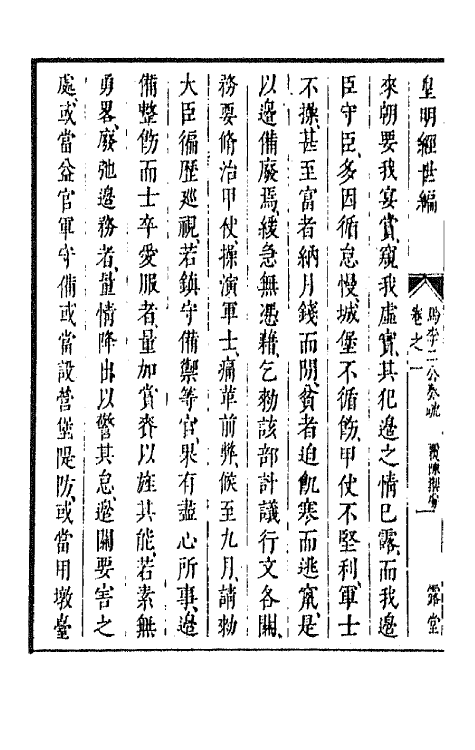 皇明經世編
卷之一
露堂
來朝要我宴賞窺我虛實其犯邊之情已露而我邊
臣守臣多因循怠慢城堡不循飭甲仗不堅利軍士
不操甚至富者納月錢而閒貧者迫飢寒而逃竄是
以邊備廢焉緩急無憑藉乞勑該部計議行文各關
務要脩治甲仗操演軍士痛革前弊候至九月請勑
大臣徧歷巡視若鎮守備禦等官果有盡心所事邊
備整飭而士卒愛服者量加賞賚以旌其能若素無
勇畧廢弛邊務者量情降出以警其怠邊關要害之
處或當益官軍守備或當設營堡隄防或當用墩臺